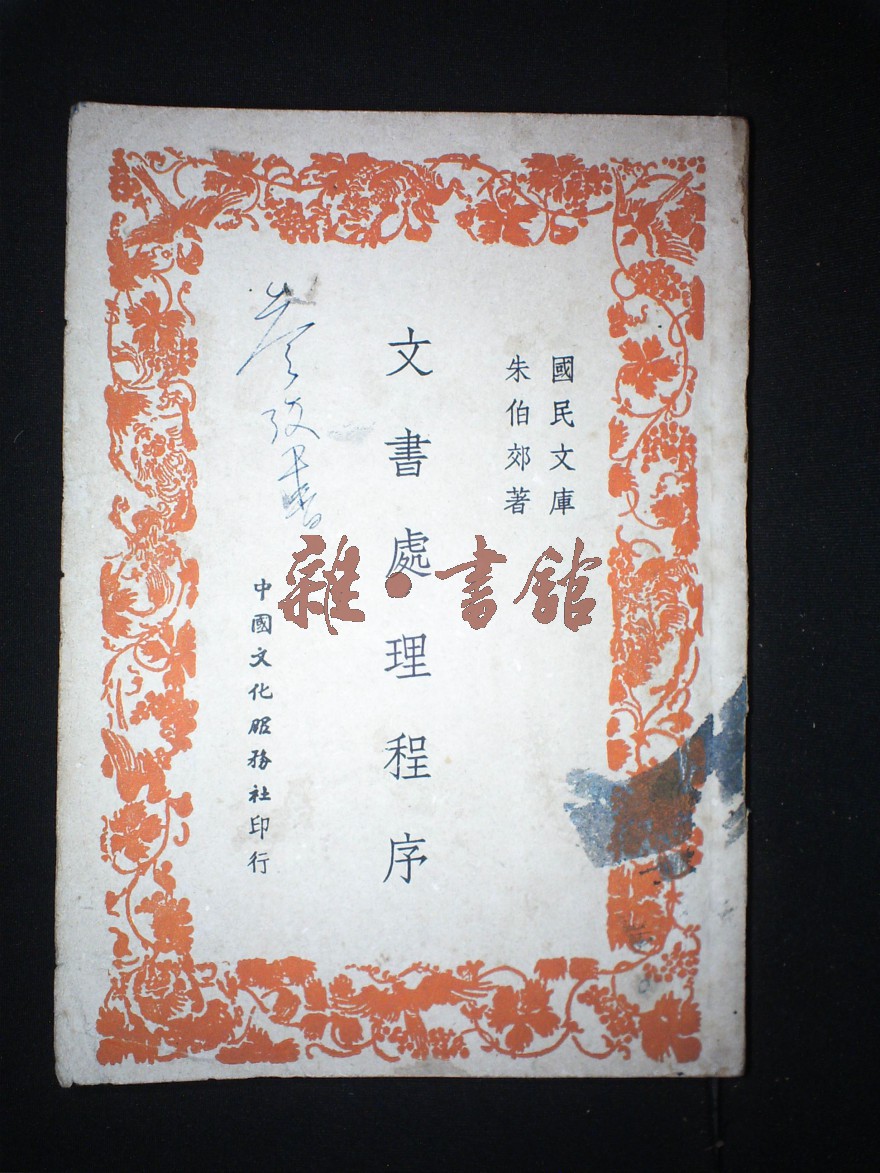 國民文庫
朱伯郊著
文書處理程序
中國文化服務社印行
雜·書館